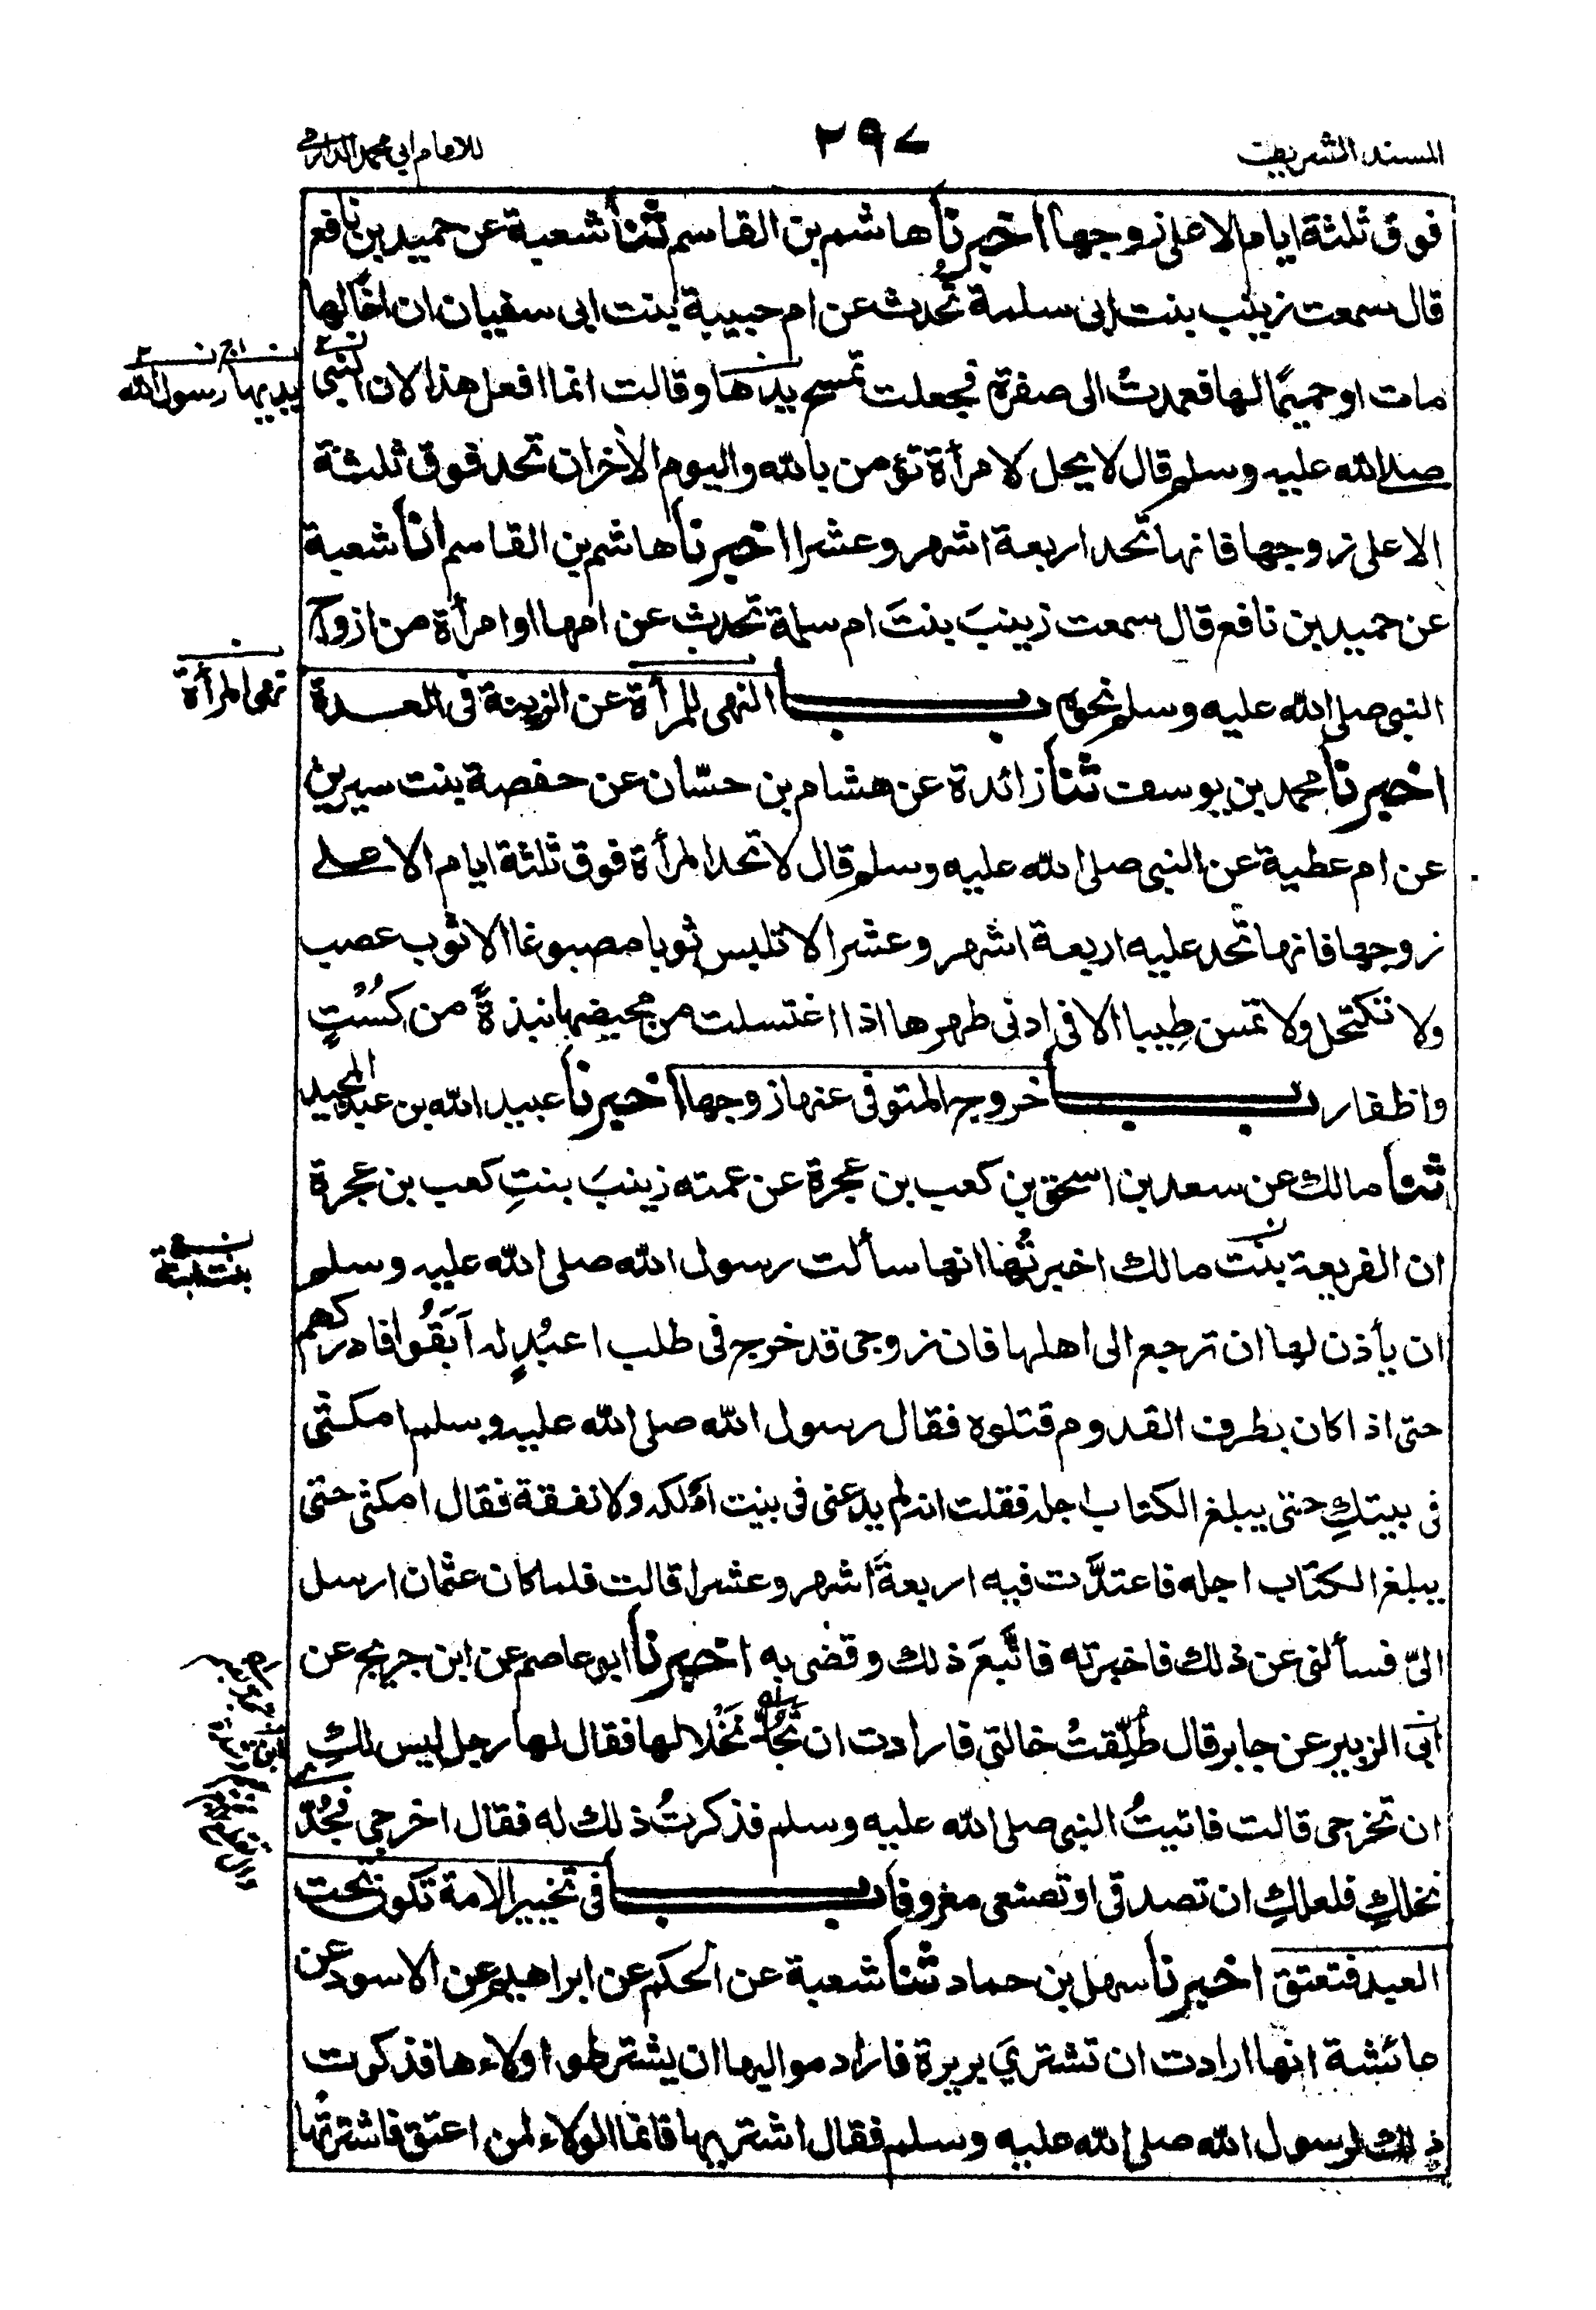 المسند الشريف
٢٩٧
للامام ابي محمد الدارمي
فوق ثلثة ايام الا على زوجها اخبرنا هاشم بن القاسم ثنا شعبة عن حميد بن نافع
قال سمعت زينب بنت ابى سلمة تُحدث عن ام حبيبة بنت ابى سفيان ان اخًا لها
مات او حميمًا لها فعمدت الى صفرة فجعلت تمسح يدها وقالت انما افعل هذا لان النبى
يديها رسول الله
صلى الله عليه وسلم قال لا يحل لامرأة تؤمن بالله واليوم الأخر ان تحد فوق ثلثة
الا على زوجها فانها تحد اربعة اشهر وعشرا اخبرنا هاشم بن القاسم انا شعبة
عن حميد بن نافع قال سمعت زينبَ بنتَ ام سلمة تحدث عن امها او امرأة من ازواج
النبى صلى الله عليه وسلم نحوه باب النهى للمرأة عن الزينة فى العدة
نهى المرأة
اخبرنا محمد بن يوسف ثنا زائدة عن هشام بن حسّان عن حفصة بنت سيرين
عن ام عطية عن النبى صلى الله عليه وسلم قال لا تحد المرأة فوق ثلثة ايام الا على
زوجها فانها تحد عليه اربعة اشهر وعشرا لا تلبس ثوبا مصبوغا الا ثوب عصب
ولا تكتحل ولا تمس طِيبا الا فى ادنى طهرها اذا اغتسلت من محيضها نبذةً من كُسْتٍ
واظفار باب خروج المتوفى عنها زوجها اخبرنا عبيد الله بن عبد المجيد
ثنا مالك عن سعد بن اسحق بن كعب بن عجرة عن عمته زينبَ بنتِ كعب بن عجرة
ان الفريعة بنت مالك اخبرتُها انها سألت رسول الله صلى الله عليه وسلم
ان يأذن لها ان ترجع الى اهلها فان زوجى قد خرج فى طلب اعبُدٍ له اَبَقُوا فادركهم
حتى اذا كان بطرف القدوم قتلوه فقال رسول الله صلى الله عليه وسلم امكثى
فى بيتكِ حتى يبلغ الكتاب اجله فقلت انه لم يدعنى فى بيت املكه ولا نفقة فقال امكثى حتى
يبلغ الكتاب اجله فاعتدَّت فيه اربعةَ اشهر وعشرا قالت فلما كان عثمان ارسل
الىّ فسألنى عن ذلك فاخبرته فاتَّبعَ ذلك وقضى به اخبرنا ابو عاصم عن ابن جريج عن
ابى الزبير عن جابر قال طُلِّقتْ خالتى فارادت ان تجُدَّ نَخْلا لها فقال لها رجل ليس لكِ
ان تخرجى قالت فاتيتُ النبى صلى الله عليه وسلم فذكرتُ ذلك له فقال اخرجى فجُدّى
نخلكِ فلعلكِ ان تصدقى او تصنعى معروفا باب فى تخيير الامة تكون تحت
العبد فتعتق اخبرنا سهل بن حماد ثنا شعبة عن الحكم عن ابراهيم عن الاسود عن
عائشة انها ارادت ان تشترى بريرة فاراد مواليها ان يشترطوا ولاءها فذكرت
ذلك لرسول الله صلى الله عليه وسلم فقال اشتريها فانما الولاء لمن اعتق فاشترتها